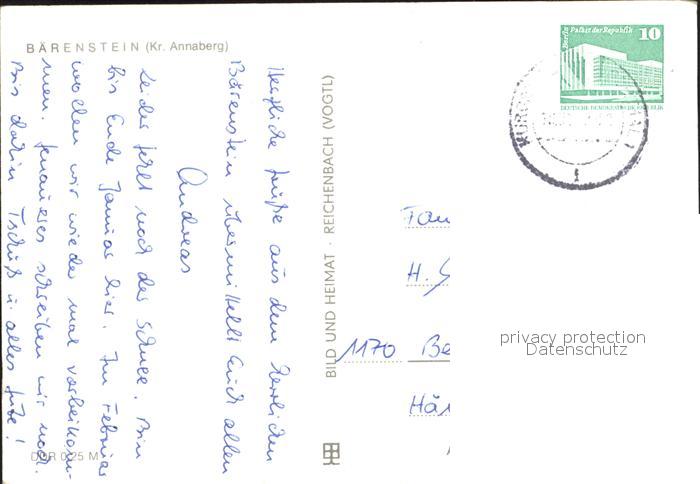 BÄRENSTEIN (Kr. Annaberg)
Herzliche Grüße aus dem herrlichen
Bärenstein übermittelt Euch allen
Andreas
Leider fehlt noch der Schnee. Bin
bis Ende Januar hier. Im Februar
wollen wir wieder mal vorbeikom-
men. Genaueres schreiben wir noch.
Bis dahin Tschüß u. alles Gute!
DDR 0,25 M
BILD UND HEIMAT · REICHENBACH (VOGTL)
Berlin Palast der Republik 10
DEUTSCHE DEMOKRATISCHE REPUBLIK
Fam
H. S
1170 Be
Hä
privacy protection
Datenschutz